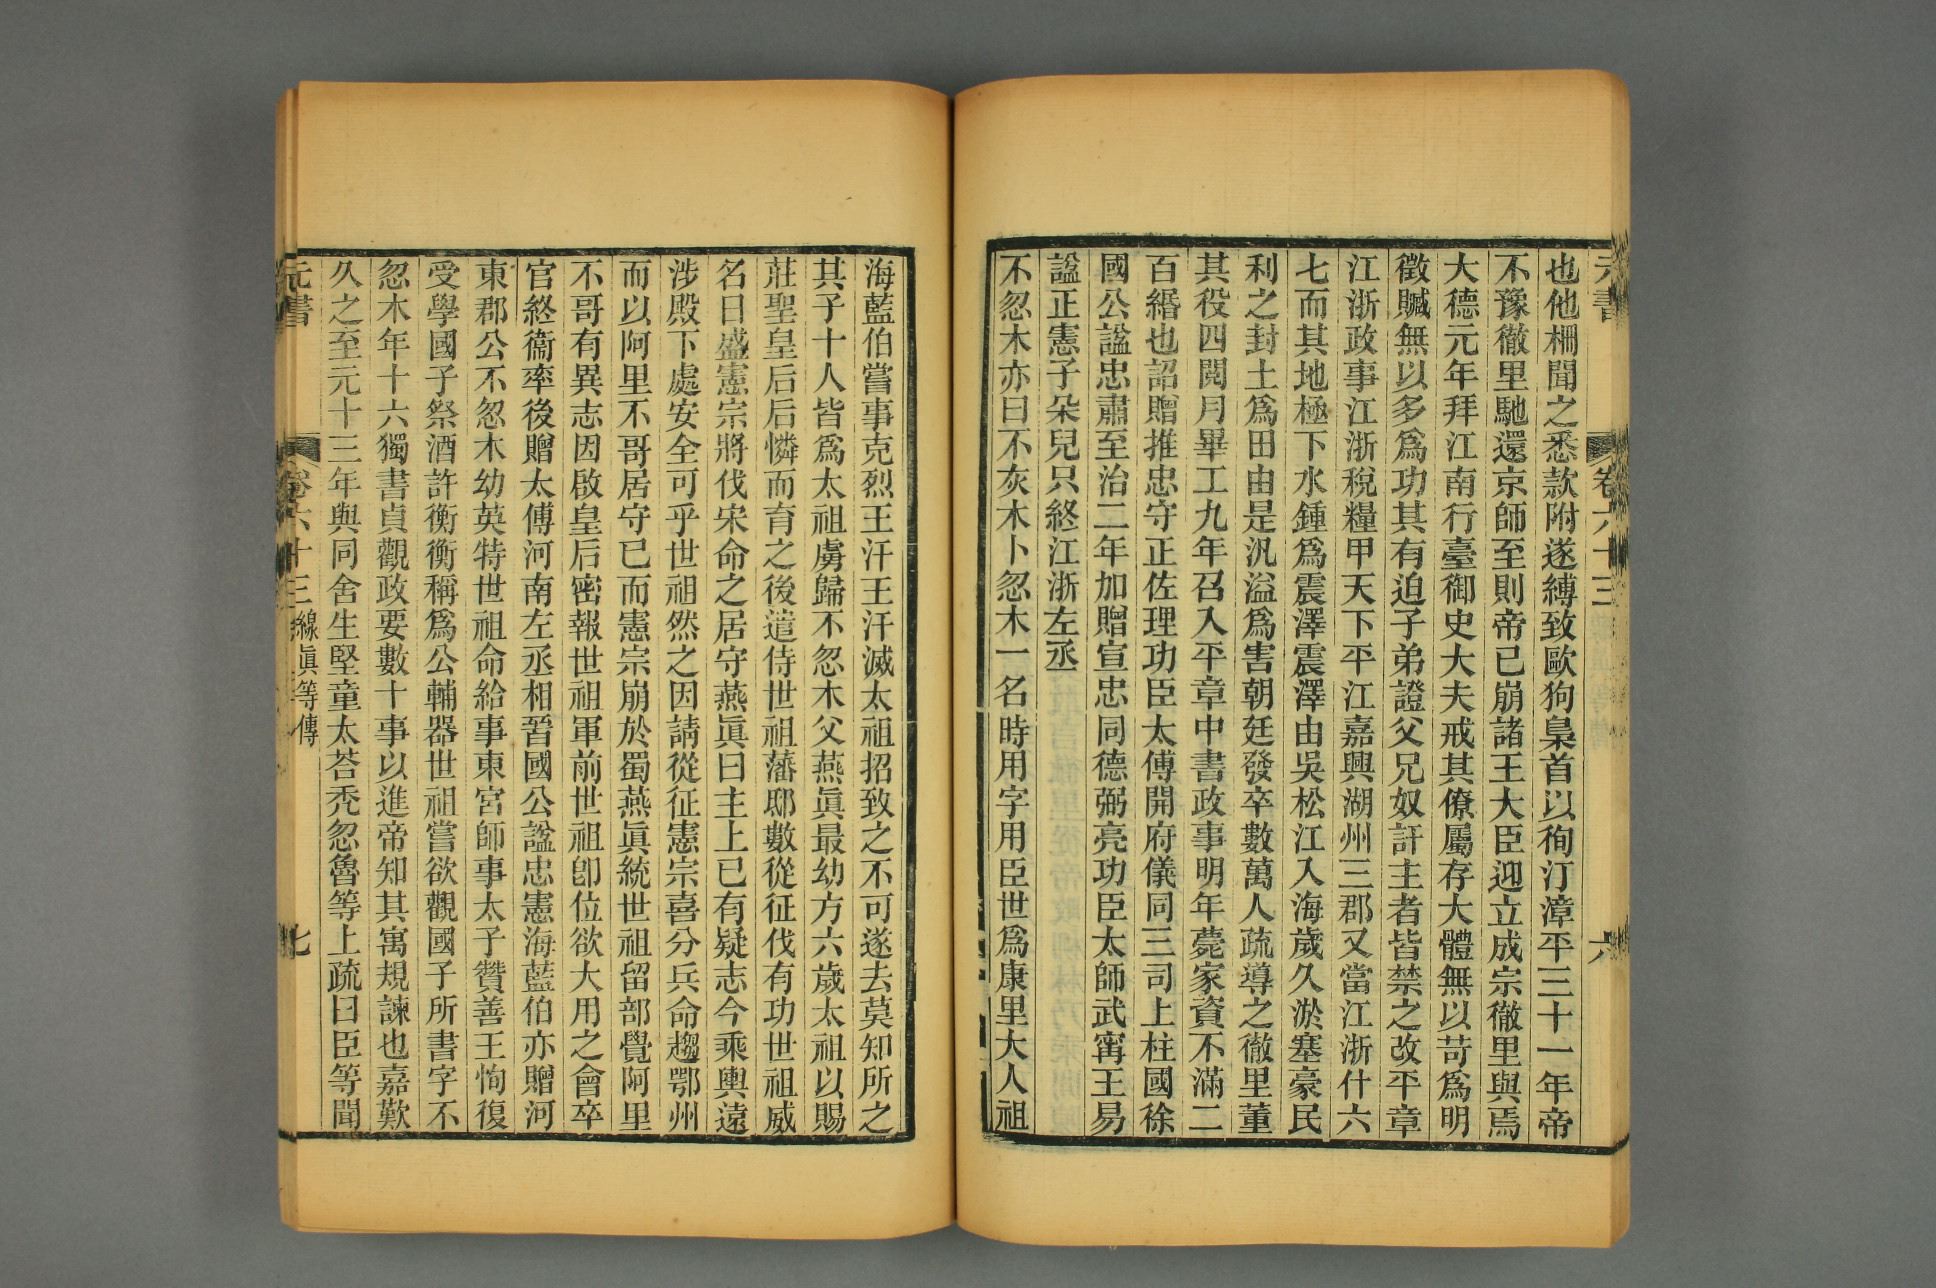 元書 卷六十三 六
也他柵聞之悉款附遂縛致歐狗梟首以徇汀漳平三十一年帝
不豫徹里馳還京師至則帝已崩諸王大臣迎立成宗徹里與焉
大德元年拜江南行臺御史大夫戒其僚屬存大體無以苛爲明
徵贓無以多爲功其有迫子弟證父兄奴訐主者皆禁之改平章
江浙政事江浙稅糧甲天下平江嘉興湖州三郡又當江浙什六
七而其地極下水鍾爲震澤震澤由吳松江入海歲久淤塞豪民
利之封土爲田由是汎溢爲害朝廷發卒數萬人疏導之徹里董
其役四閱月畢工九年召入平章中書政事明年薨家資不滿二
百緡也詔贈推忠守正佐理功臣太傅開府儀同三司上柱國徐
國公諡忠肅至治二年加贈宣忠同德弼亮功臣太師武甯王易
諡正憲子朵兒只終江浙左丞
不忽木亦曰不灰木卜忽木一名時用字用臣世爲康里大人祖
海藍伯嘗事克烈王汗王汗滅太祖招致之不可遂去莫知所之
其子十人皆爲太祖虜歸不忽木父燕眞最幼方六歲太祖以賜
莊聖皇后后憐而育之後遣侍世祖藩邸數從征伐有功世祖威
名日盛憲宗將伐宋命之居守燕眞曰主上已有疑志今乘輿遠
涉殿下處安全可乎世祖然之因請從征憲宗喜分兵命趨鄂州
而以阿里不哥居守已而憲宗崩於蜀燕眞統世祖留部覺阿里
不哥有異志因啟皇后密報世祖軍前世祖卽位欲大用之會卒
官終衞率後贈太傅河南左丞相晉國公諡忠憲海藍伯亦贈河
東郡公不忽木幼英特世祖命給事東宮師事太子贊善王恂復
受學國子祭酒許衡衡稱爲公輔器世祖嘗欲觀國子所書字不
忽木年十六獨書貞觀政要數十事以進帝知其寓規諫也嘉歎
久之至元十三年與同舍生堅童太荅禿忽魯等上疏曰臣等聞
元書 卷六十三 線眞等傳 七